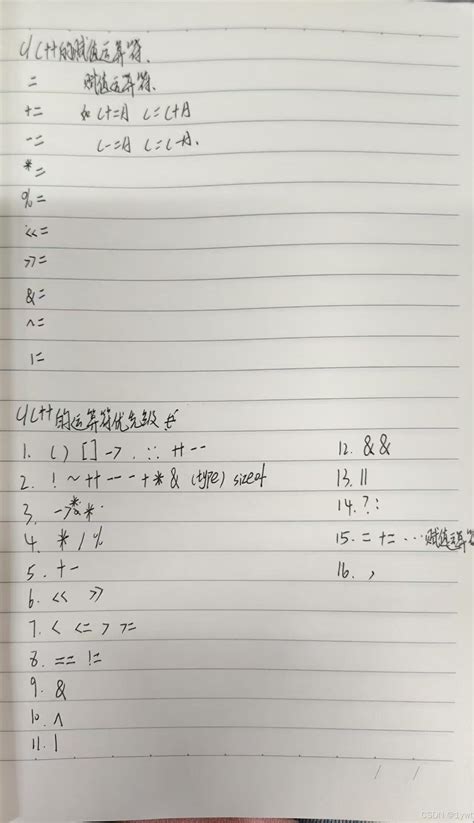 4) C++的赋值运算符、
= 赋值运算符、
+= 如 C+=A C=C+A
-= C-=A C=C-A、
*=
%=
<<=
>>=
&=
^=
|=
4) C++的运算符优先级
1. () [] -> . :: ++ --
2. ! ~ ++ -- - + * & (type) sizeof
3. ->* .*
4. * / %
5. + -
6. << >>
7. < <= > >=
8. == !=
9. &
10. ^
11. |
12. &&
13. ||
14. ? :
15. = += ... 赋值运算符
16. ,
/ /
CSDN @1ywr